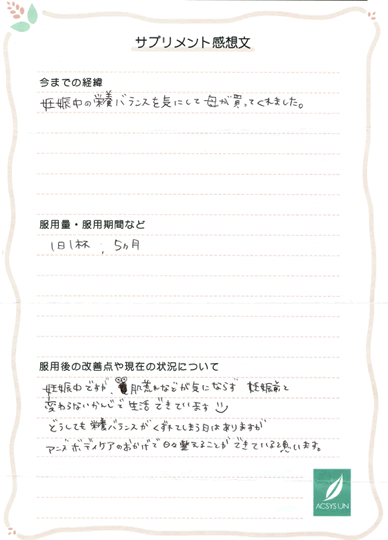 サプリメント感想文
今までの経緯
妊娠中の栄養バランスを気にして母が買ってくれました。
服用量・服用期間など
1日1杯、5ヵ月
服用後の改善点や現在の状況について
妊娠中ですが、肌荒れなどが気にならず 妊娠前と
変わらないかんじで生活できています
どうしても栄養バランスがくずれてしまう日はありますが
アンズボディケアのおかげで日々整えることができていると思います。
ACSYS UN